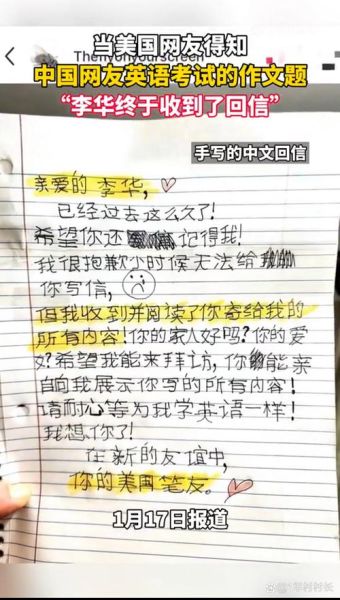 Thenyonyourscreen
当美国网友得知
中国网友英语考试的作文题
“李华终于收到了回信”
手写的中文回信
亲爱的李华,
已经过去这么久了!
希望你还记得我!
我很抱歉小时候无法给
你写信,
但我收到并阅读了你寄给我的
所有内容!你的家人好吗?你的爱
好?希望我能来拜访,你能亲
自向我展示你写的所有内容!
请耐心等为我学英语一样!
我想你了!
在新的友谊中,
你的美国笔友。
1月17日报道
村村长